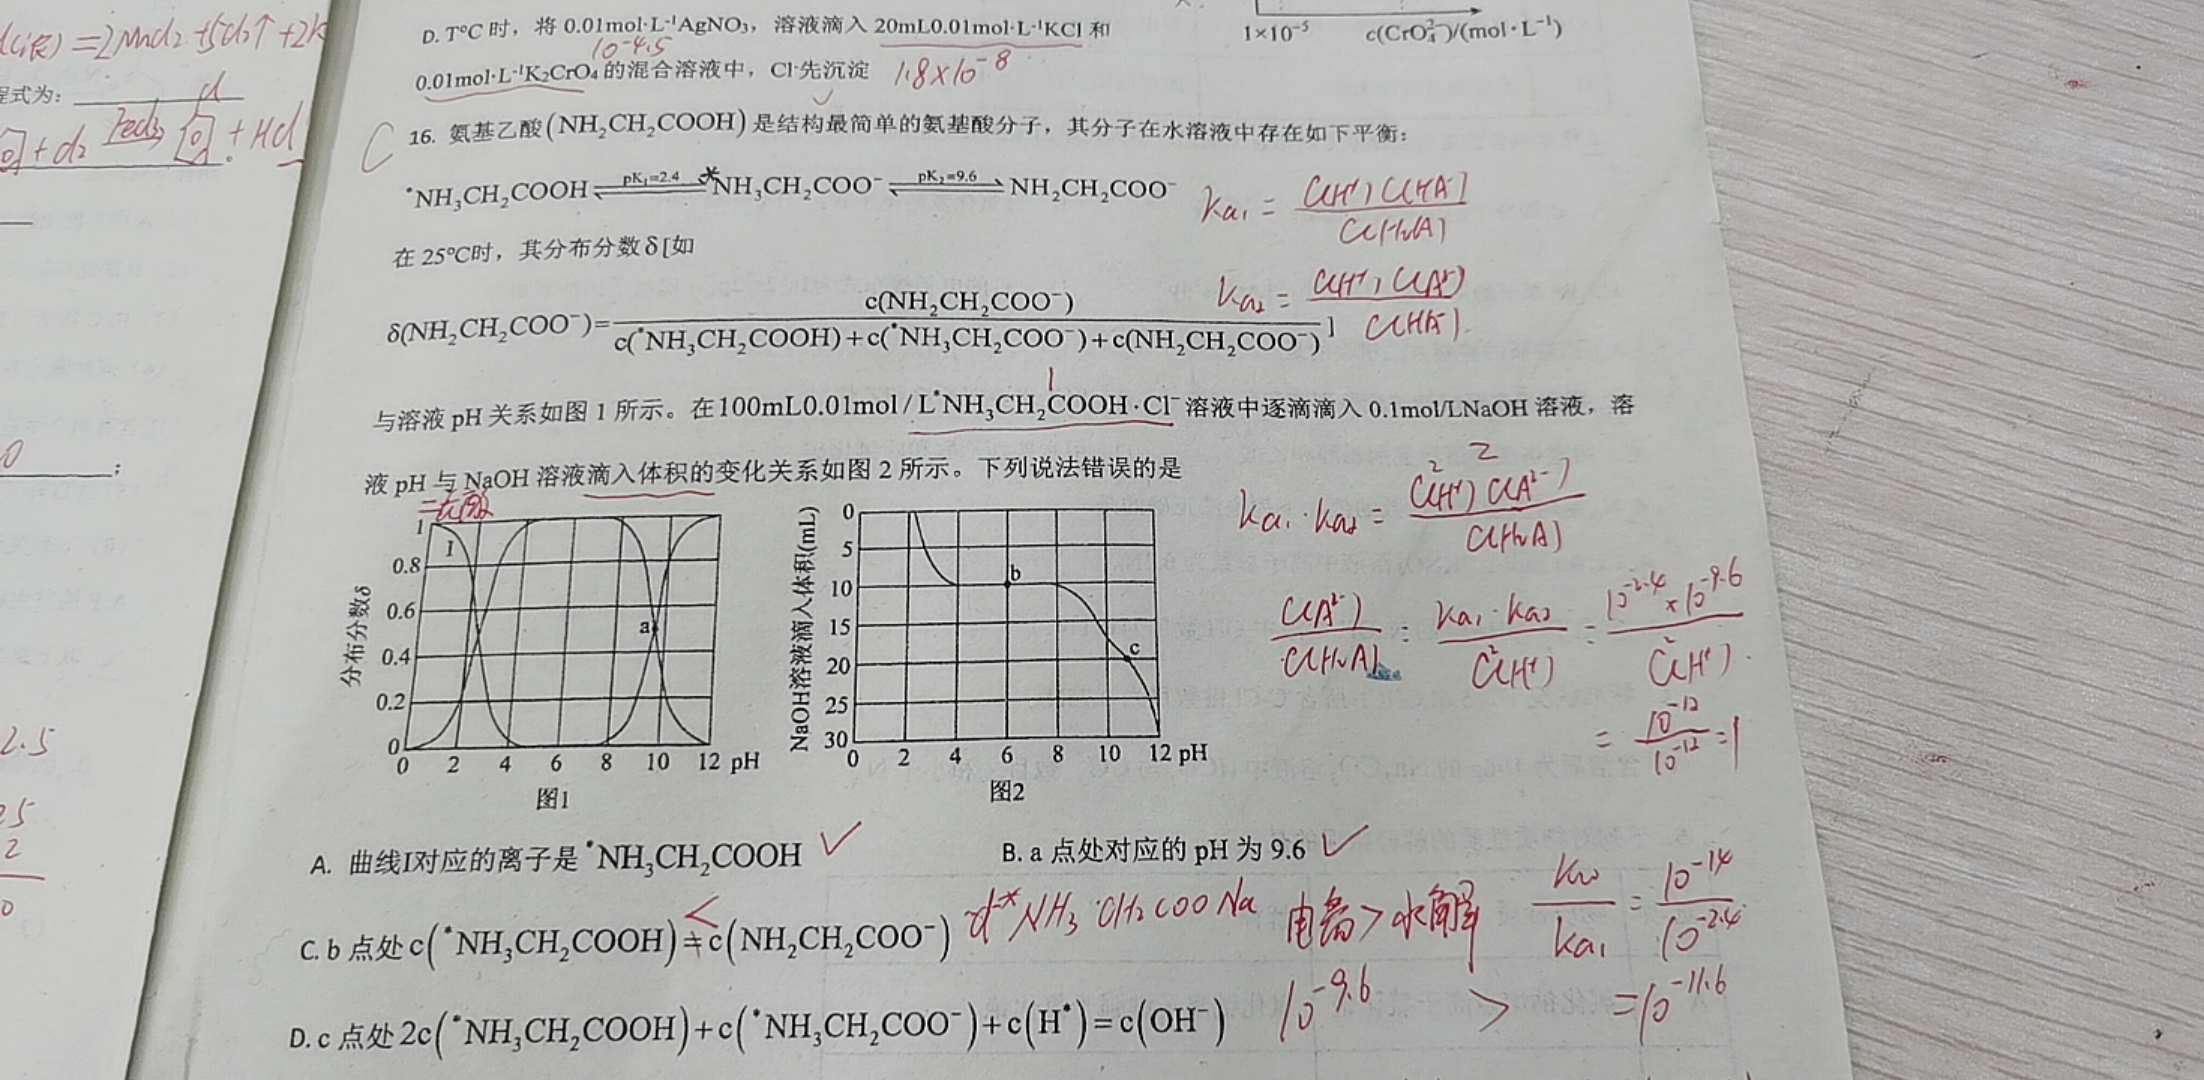 D. T°C 时，将 0.01mol·L⁻¹AgNO₃，溶液滴入 20mL0.01mol·L⁻¹KCl 和
0.01mol·L⁻¹K₂CrO₄ 的混合溶液中，Cl⁻先沉淀
10^-4.5
1.8×10^-8
1×10⁻⁵ c(CrO₄²⁻)/(mol·L⁻¹)
程式为：
C
16. 氨基乙酸(NH₂CH₂COOH)是结构最简单的氨基酸分子，其分子在水溶液中存在如下平衡：
⁺NH₃CH₂COOH ⇌ (pK₁=2.4) ⁺NH₃CH₂COO⁻ ⇌ (pK₂=9.6) NH₂CH₂COO⁻
ka₁ = c(H⁺)c(HA⁻) / c(H₂A)
在 25°C时，其分布分数δ[如
δ(NH₂CH₂COO⁻)= c(NH₂CH₂COO⁻) / c(⁺NH₃CH₂COOH)+c(⁺NH₃CH₂COO⁻)+c(NH₂CH₂COO⁻) ]
ka₂ = c(H⁺)c(A²⁻) / c(HA⁻)
与溶液 pH 关系如图 1 所示。在100mL0.01mol/L⁺NH₃CH₂COOH·Cl⁻溶液中逐滴滴入 0.1mol/LNaOH 溶液，溶
液 pH 与 NaOH 溶液滴入体积的变化关系如图 2 所示。下列说法错误的是
ka₁·ka₂ = c²(H⁺)c(A²⁻) / c(H₂A)
c(A²⁻) / c(H₂A) = ka₁·ka₂ / c²(H⁺) = 10^-2.4×10^-9.6 / c²(H⁺)
= 10^-12 / 10^-12 = 1
分布分数δ
1
0.8
0.6
0.4
0.2
0
I
a
0 2 4 6 8 10 12 pH
图1
NaOH溶液滴入体积(mL)
0
5
10
15
20
25
30
b
c
0 2 4 6 8 10 12 pH
图2
A. 曲线I对应的离子是⁺NH₃CH₂COOH ✓
B. a 点处对应的 pH 为 9.6 ✓
C. b 点处 c(⁺NH₃CH₂COOH)=c(NH₂CH₂COO⁻)
<
NH₃CH₂COONa 电离>水解 kw / ka₁ = 10^-14 / 10^-2.4
10^-9.6 > =10^-11.6
D. c 点处 2c(⁺NH₃CH₂COOH)+c(⁺NH₃CH₂COO⁻)+c(H⁺)=c(OH⁻)